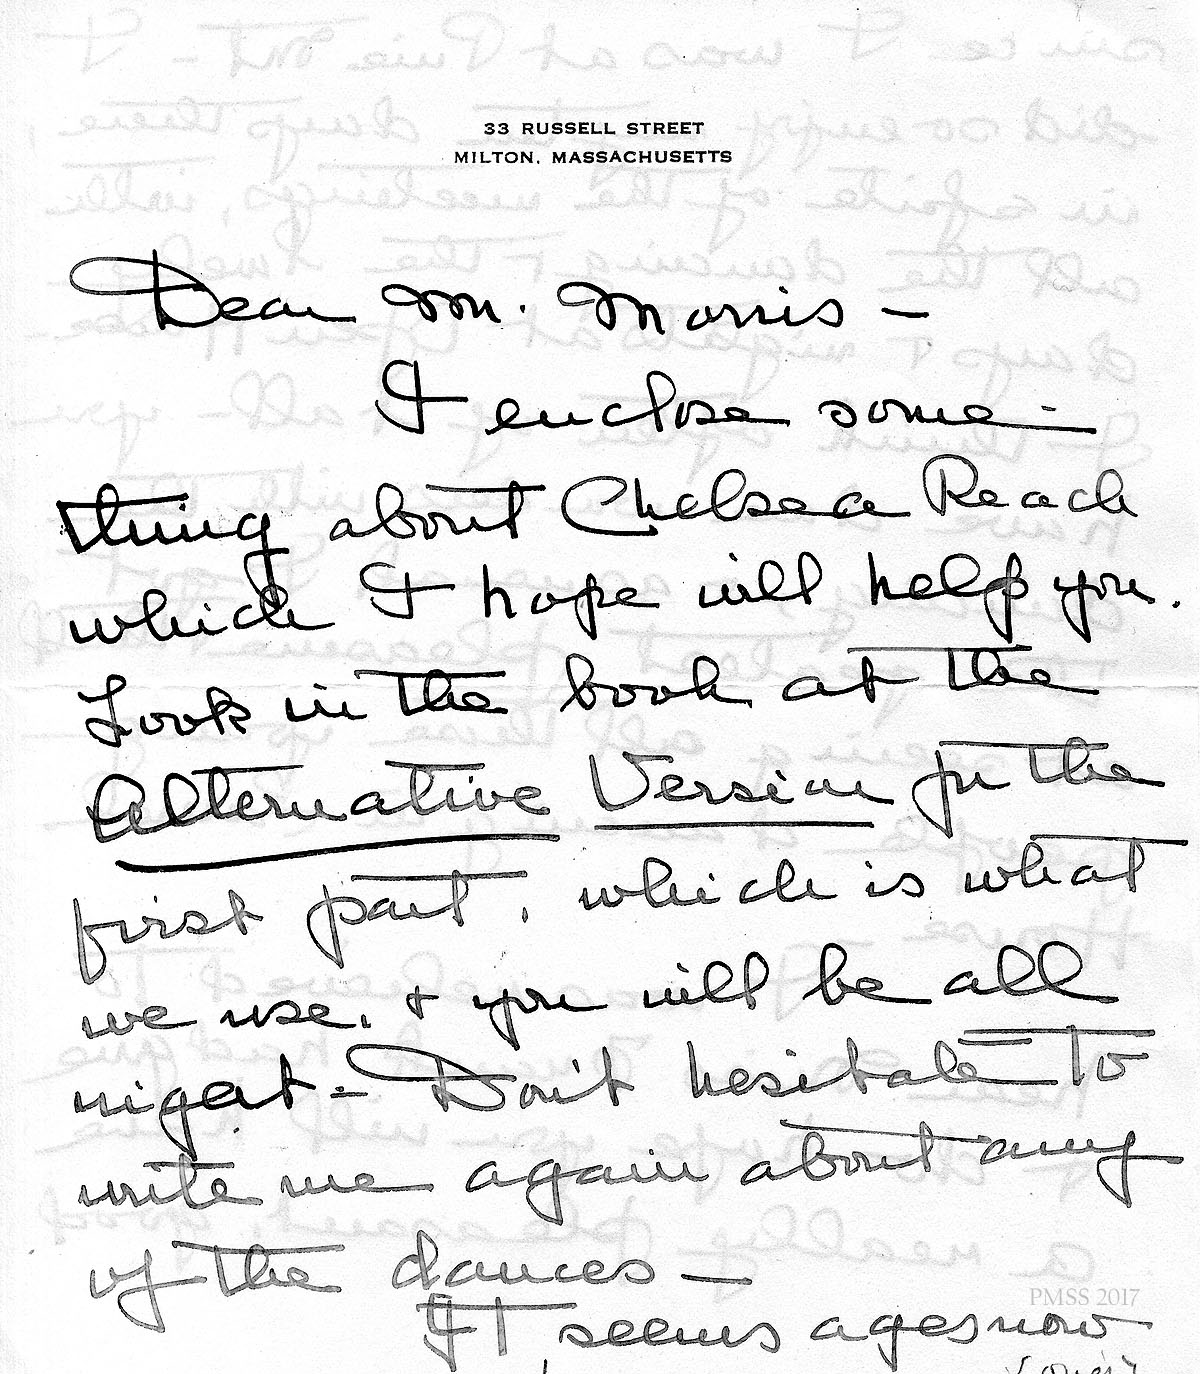 33 RUSSELL STREET
MILTON, MASSACHUSETTS
Dear Mr. Morris –
I enclose some-
thing about Chelsea Reach
which I hope will help you.
Look in the book at the
Alternative Version for the
first part, which is what
we use, & you will be all
right – Don't hesitate to
write me again about any
of the dances –
It seems ages now
(over)
PMSS 2017